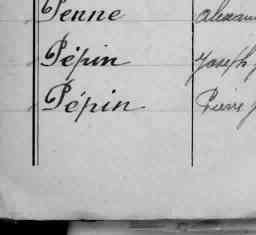 Penne
Pépin Joseph
Pépin Pierre